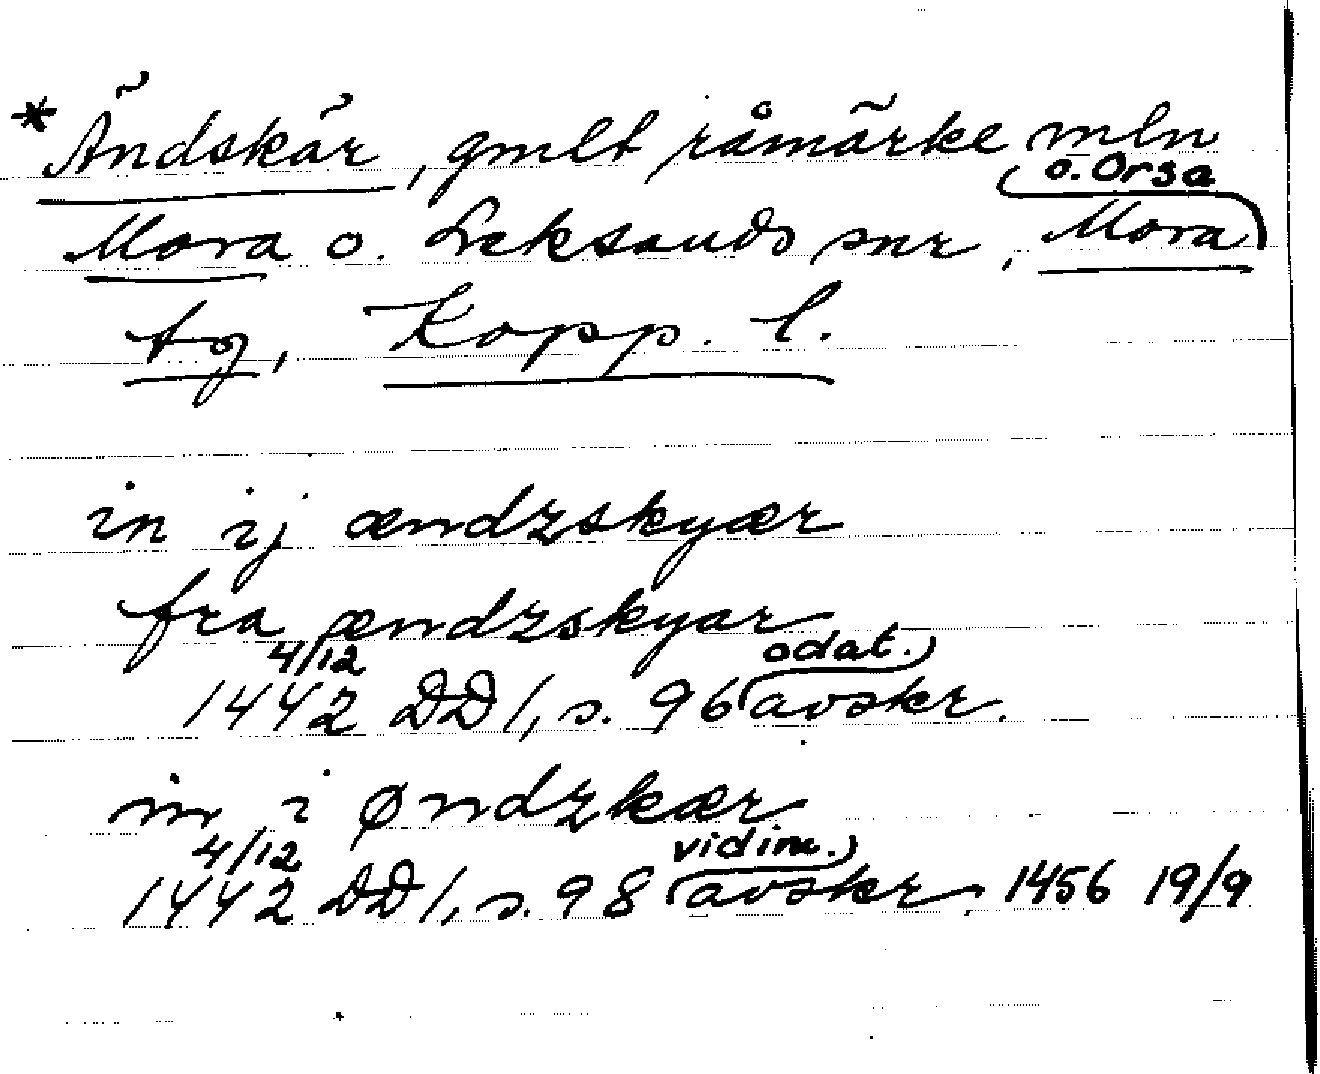 *Ändskär, gmlt råmärke mln
o. Orsa
Mora o. Leksands snr, Mora
tg, Kopp. l.
in ij ændzskyær
fra ændzskyar
4/12 odat.)
1442 DD 1, s. 96 (avskr.
in i øndzkær
4/12 vidim.)
1442 DD 1, s. 98 (avskr. 1456 19/9